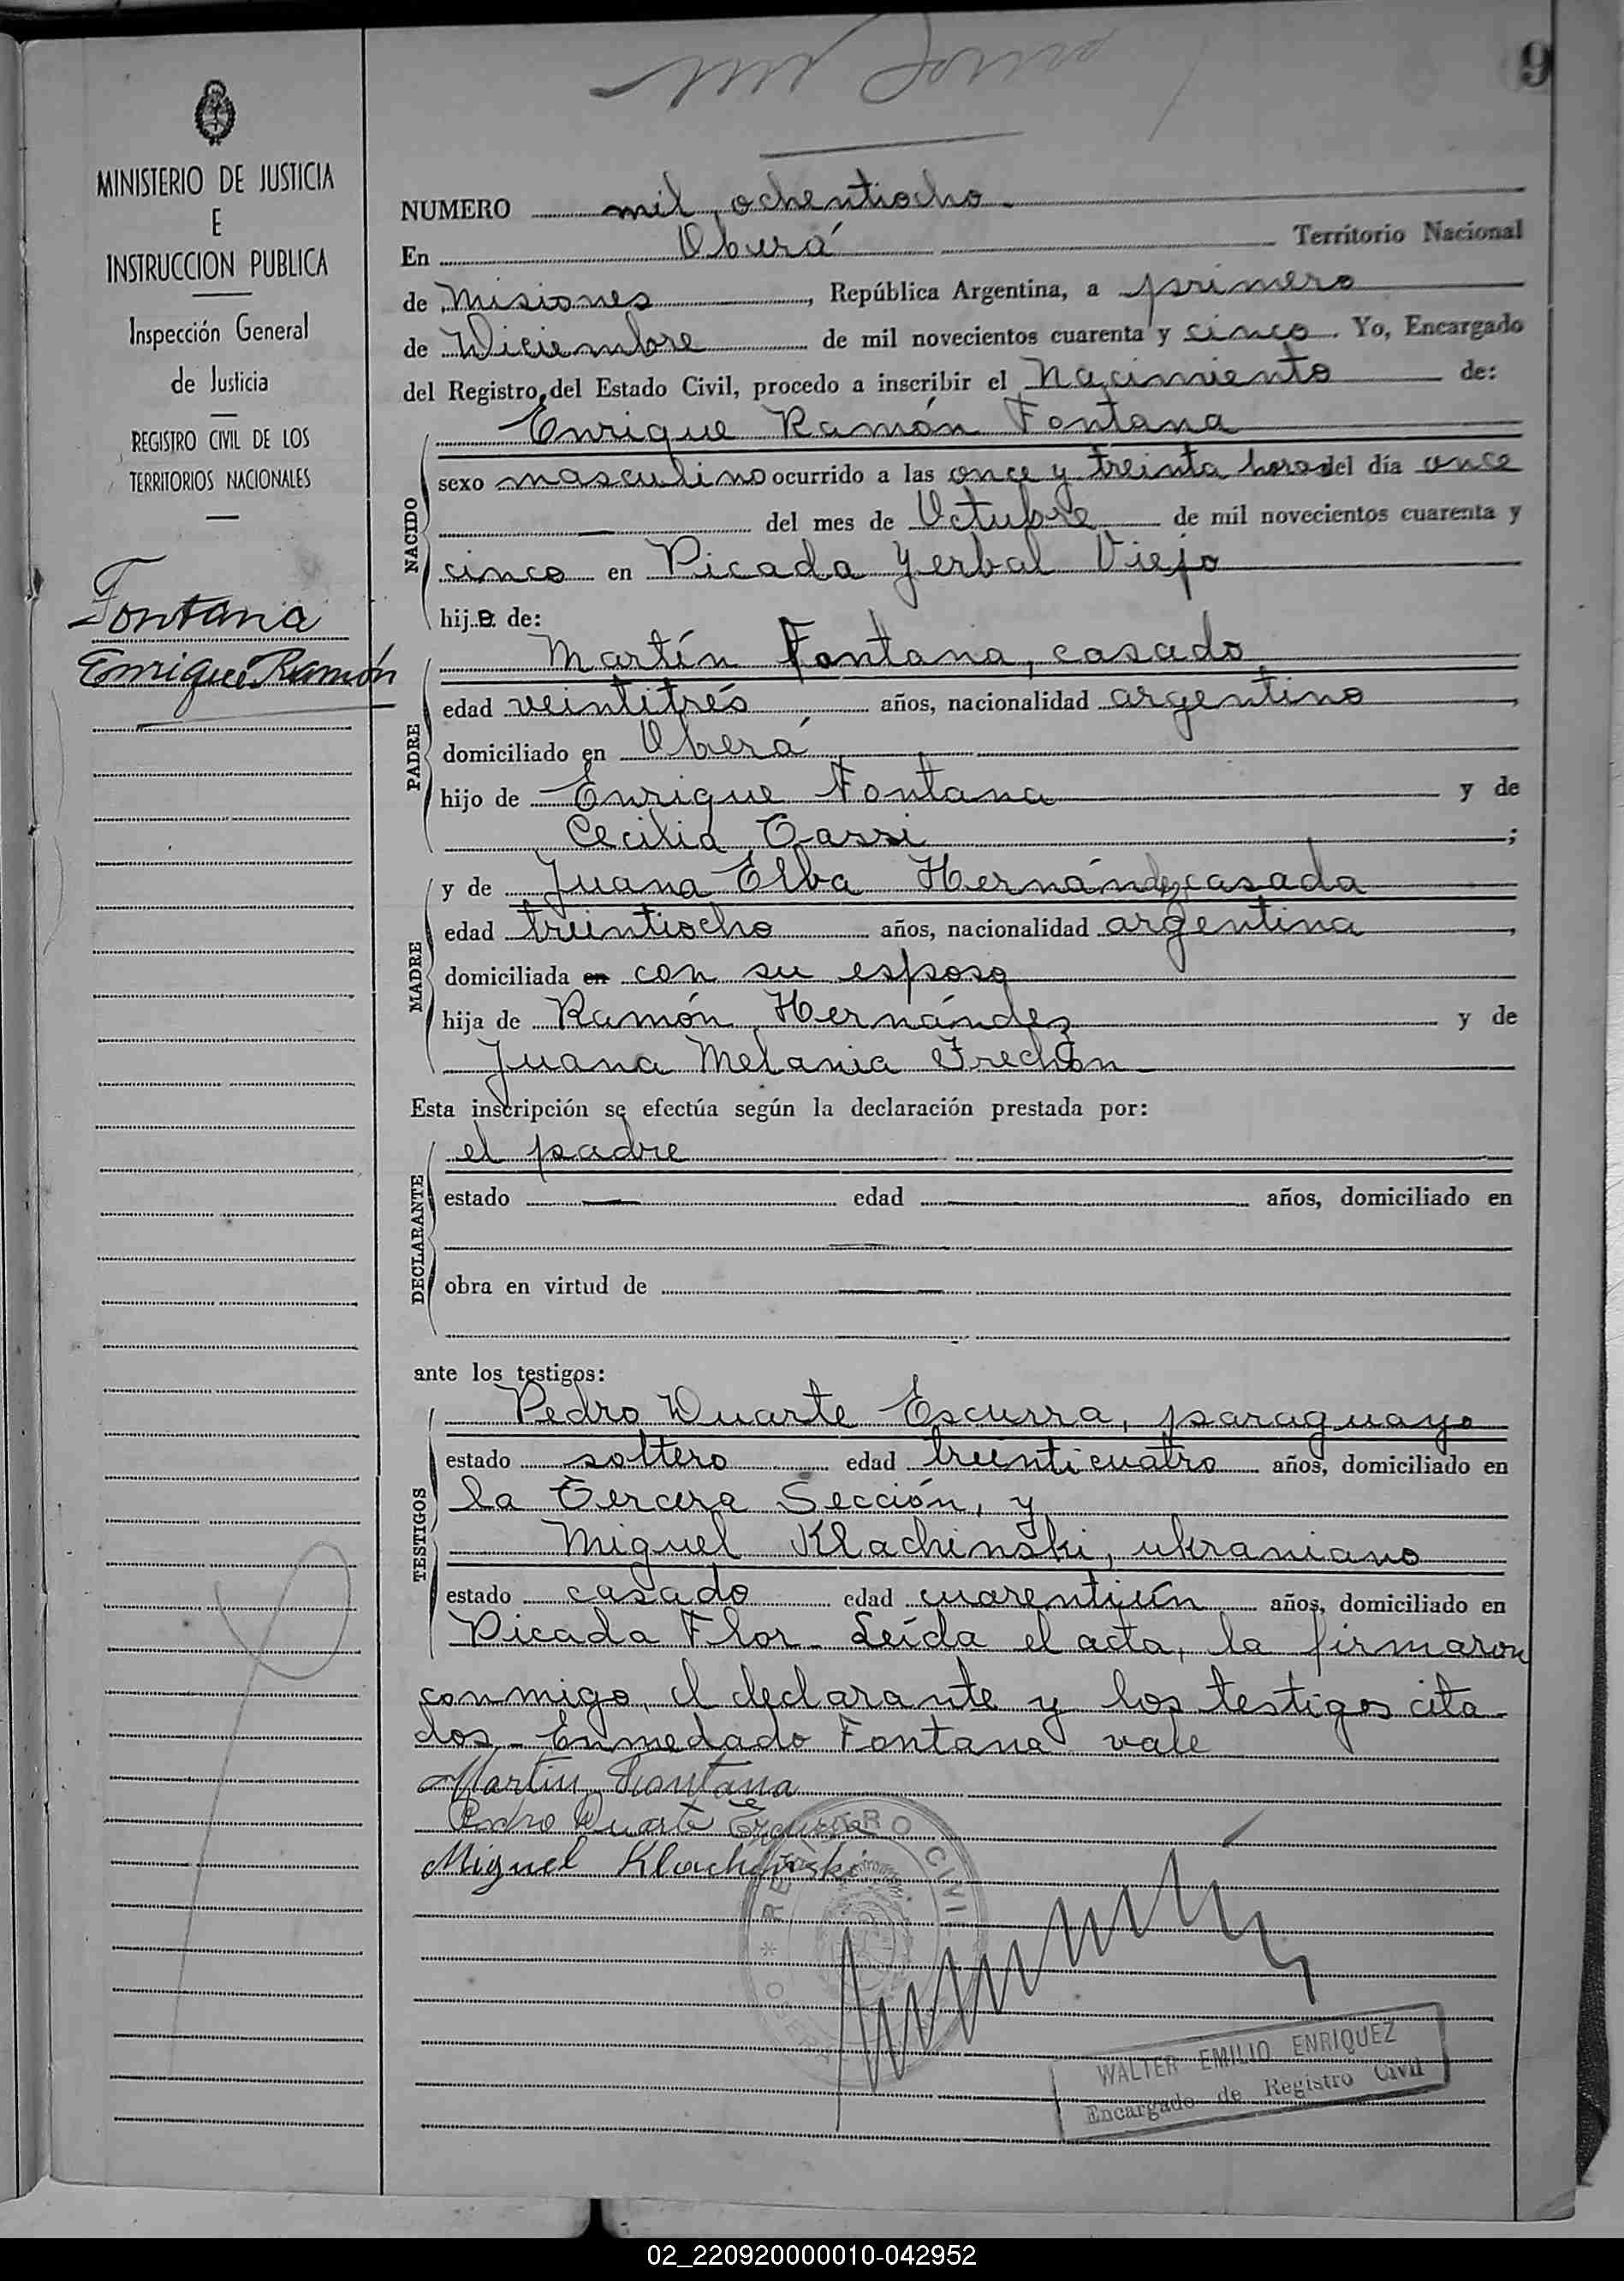 9
MINISTERIO DE JUSTICIA
E
INSTRUCCION PUBLICA
Inspección General
de Justicia
REGISTRO CIVIL DE LOS
TERRITORIOS NACIONALES
Fontana
Enrique Ramón
NUMERO mil ochentiocho.
En Oberá Territorio Nacional
de Misiones, República Argentina, a primero
de Diciembre de mil novecientos cuarenta y cinco. Yo, Encargado
del Registro del Estado Civil, procedo a inscribir el Nacimiento de:
NACIDO
Enrique Ramón Fontana
sexo masculino ocurrido a las once y treinta horas del día once
del mes de Octubre de mil novecientos cuarenta y
cinco en Picada Yerbal Viejo
hijo de:
PADRE
Martín Fontana, casado
edad veintitrés años, nacionalidad argentino,
domiciliado en Oberá
hijo de Enrique Fontana y de
Cecilia Tassi;
MADRE
y de Juana Elba Hernández, casada
edad treintiocho años, nacionalidad argentina,
domiciliada en con su esposo
hija de Ramón Hernández y de
Juana Melania Frechón
Esta inscripción se efectúa según la declaración prestada por:
DECLARANTE
el padre
estado — edad — años, domiciliado en
—
obra en virtud de —
ante los testigos:
TESTIGOS
Pedro Duarte Escurra, paraguayo
estado soltero edad treinticuatro años, domiciliado en
la Tercera Sección, y
Miguel Klachinski, ukraniano
estado casado edad cuarentiún años, domiciliado en
Picada Flor. Leída el acta, la firmaron
conmigo, el declarante y los testigos cita-
dos - Enmedado Fontana vale
Martin Fontana
Pedro Duarte
Miguel Klachinski
REGISTRO CIVIL
* OBERA
WALTER EMILIO ENRIQUEZ
Encargado de Registro Civil
02_220920000010-042952